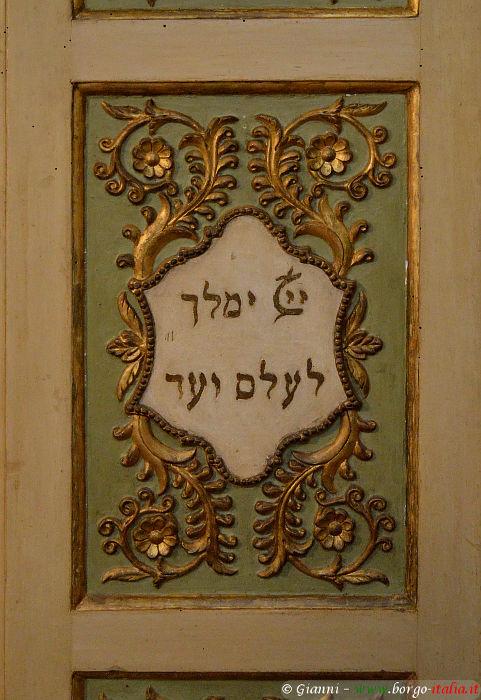 ייׄ ימלך
לעלם ועד
© Gianni - www.borgo-italia.it